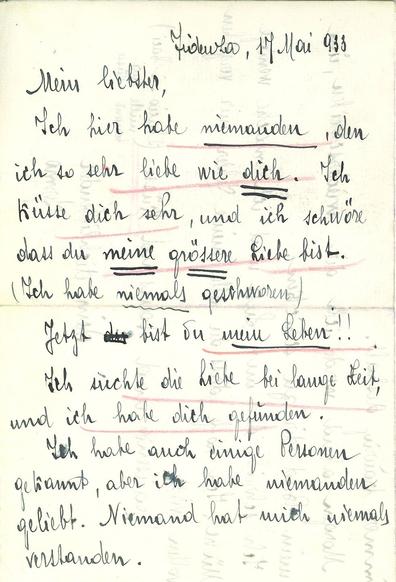 17 Mai 933
Mein liebster,
Ich hier habe niemanden, den
ich so sehr liebe wie dich. Ich
küsse dich sehr, und ich schwöre
dass du meine grössere Liebe bist.
(Ich habe niemals geschworen)
Jetzt bist du mein Leben!!
Ich suchte die Liebe bei lange Zeit,
und ich habe dich gefunden.
Ich habe auch einige Personen
gekannt, aber ich habe niemanden
geliebt. Niemand hat mich niemals
verstanden.